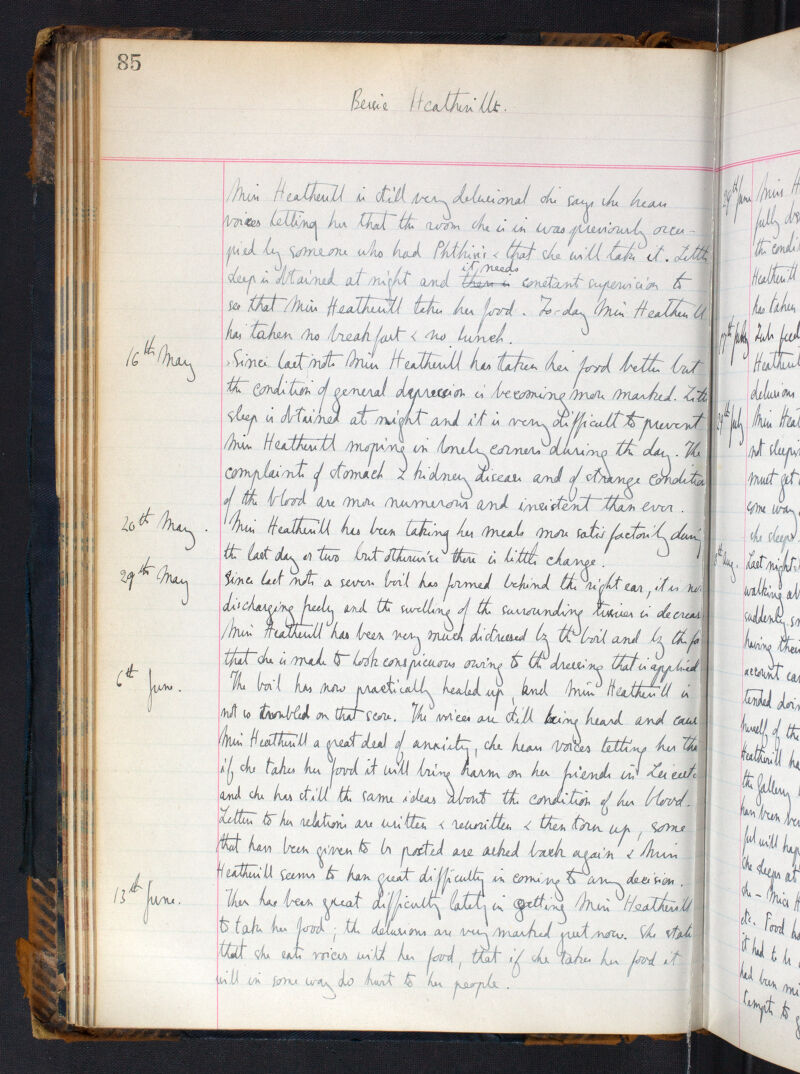 85
Bessie Heathirill.
Miss Heathirill is still very delusional she says she hears
voices telling her that the room she is in was previously occu-
pied by someone who had Phthisis & that she will take it. Little
sleep is obtained at night and there is it needs constant supervision to
see that Miss Heathirill takes her food. To-day Miss Heathirill
has taken no breakfast & no lunch.
16th May Since last note Miss Heathirill has taken her food better but
the condition of general depression is becoming more marked. Little
sleep is obtained at night and it is very difficult to prevent
Miss Heathirill moping in lonely corners during the day. The
complaints of stomach & kidney disease and of strange condition
of the blood are more numerous and insistent than ever.
20th May. Miss Heathirill has been taking her meals more satisfactorily during
the last day or two but otherwise there is little change.
29th May Since last note a severe boil has formed behind the right ear, it is now
discharging freely and the swelling of the surrounding tissues is decreas
Miss Heathirill has been very much distressed by the boil and by the fa
that she is made to look conspicuous owing to the dressing that is applied
6th June. The boil has now practically healed up, and Miss Heathirill is
not so troubled on that score. The voices are still being heard and cause
Miss Heathirill a great deal of anxiety, she hears voices telling her tha
if she takes her food it will bring harm on her friends in Leicest
and she has still the same ideas about the condition of her blood.
Letters to her relations are written & rewritten & then torn up, some
that have been given to be posted are asked back again & Miss
Heathirill seems to have great difficulty in coming to any decision.
13th June. There has been great difficulty lately in getting Miss Heathirill
to take her food; the delusions are very marked just now. She states
that she eats voices with her food, that if she takes her food it
will in some way do hurt to her people.
Miss H
fully dr
the condi
Heathirill
has taken
17th July Tube feed
Heathirill
delusions
July Miss Heat
not sleepi
must get
some way
she sleeps
Aug. Last night
walking ab
suddenly
having thei
account
tended
herself of the
Heathirill ha
the gallery
have been
ful will happ
She sleeps at
she - Miss H
etc. Food ha
it had to be
had been mi
tempts to